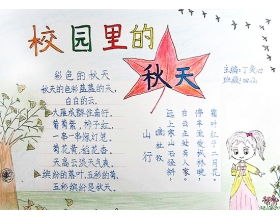 校园里的
秋天
主编:丁
班级:四
彩色的秋天
秋天的色彩是蓝的天,
白白的云,
大雁成群往南行。
葡萄紫,柿子红,
一串一串
菊花黄,稻花香,
天高云淡天气爽,
缤纷的落叶,五彩的菊,
五彩缤纷是秋天。
山行
杜牧
远上寒山石径斜,
白云生处有人家。
停车坐爱枫林晚,
霜叶红于二月花。